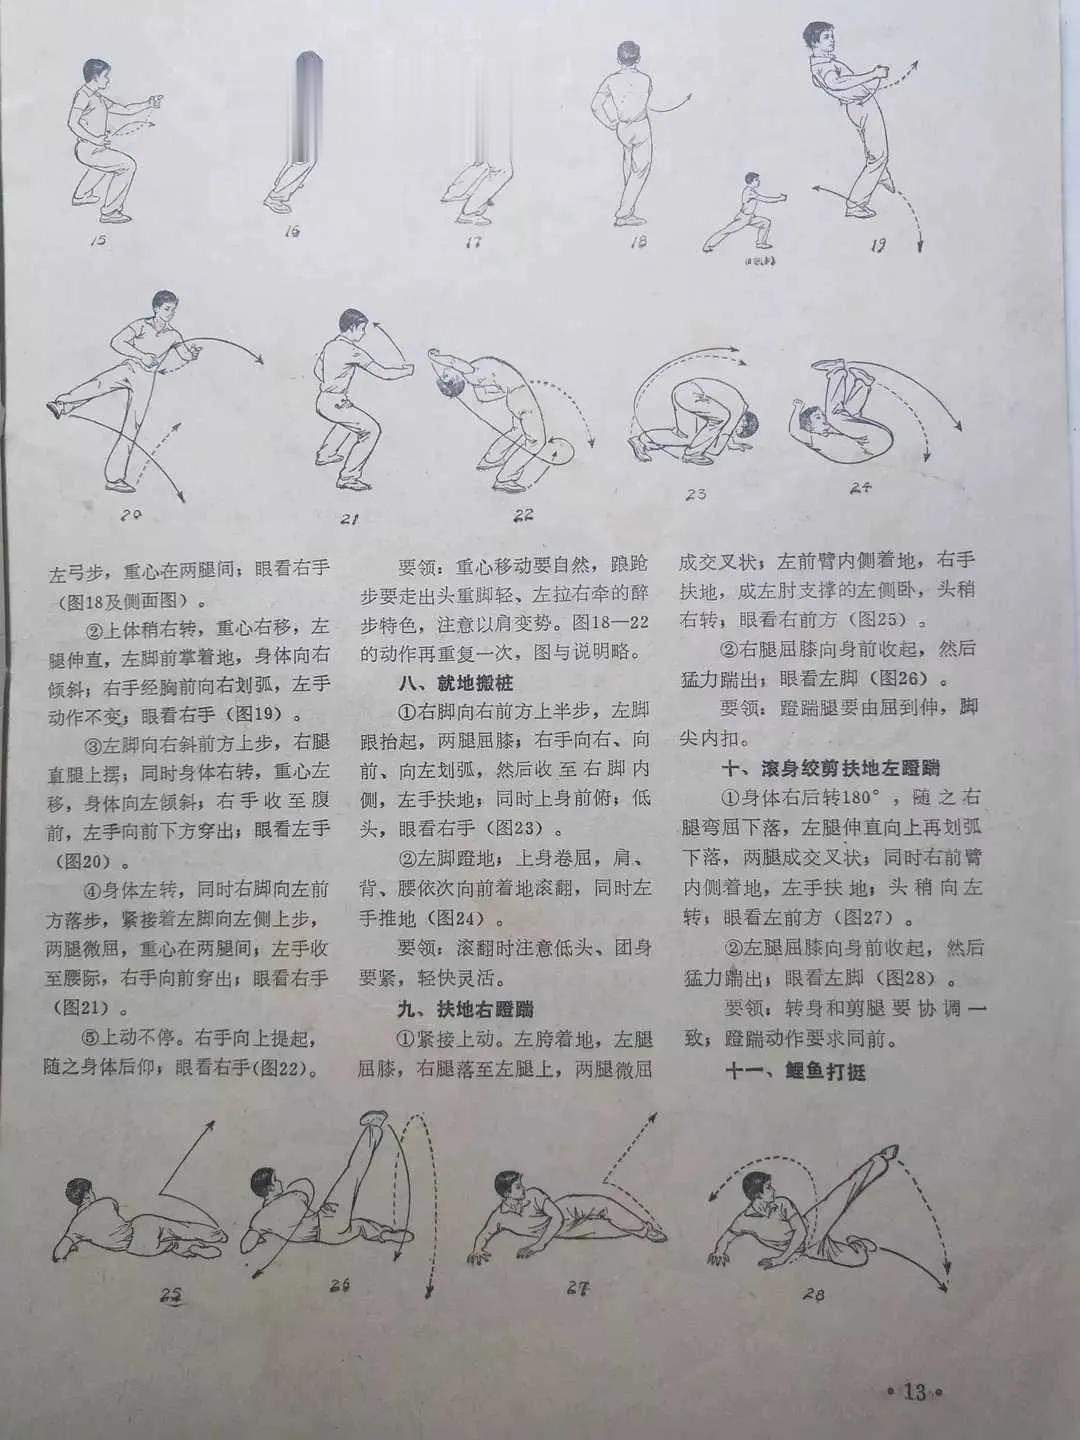 15
16
17
18
19
20
21
22
23
24
左弓步，重心在两腿间；眼看右手
（图18及侧面图）。
②上体稍右转，重心右移，左
腿伸直，左脚前掌着地，身体向右
倾斜；右手经胸前向右划弧，左手
动作不变；眼看右手（图19）。
③左脚向右斜前方上步，右腿
直腿上摆；同时身体右转，重心左
移，身体向左倾斜；右手收至腹
前，左手向前下方穿出；眼看左手
（图20）。
④身体左转，同时右脚向左前
方落步，紧接着左脚向左侧上步，
两腿微屈，重心在两腿间；左手收
至腰际，右手向前穿出；眼看右手
（图21）。
⑤上动不停。右手向上提起，
随之身体后仰；眼看右手（图22）。
要领：重心移动要自然，踉跄
步要走出头重脚轻、左拉右牵的醉
步特色，注意以肩变势。图18—22
的动作再重复一次，图与说明略。
八、就地搬桩
①右脚向右前方上半步，左脚
跟抬起，两腿屈膝；右手向右、向
前、向左划弧，然后收至右脚内
侧，左手扶地；同时上身前俯；低
头，眼看右手（图23）。
②左脚蹬地；上身卷屈，肩、
背、腰依次向前着地滚翻，同时左
手推地（图24）。
要领：滚翻时注意低头、团身
要紧，轻快灵活。
九、扶地右蹬踹
①紧接上动。左胯着地，左腿
屈膝，右腿落至左腿上，两腿微屈
成交叉状；左前臂内侧着地，右手
扶地，成左肘支撑的左侧卧，头稍
右转；眼看右前方（图25）。
②右腿屈膝向身前收起，然后
猛力踹出；眼看左脚（图26）。
要领：蹬踹腿要由屈到伸，脚
尖内扣。
十、滚身绞剪扶地左蹬踹
①身体右后转180°，随之右
腿弯屈下落，左腿伸直向上再划弧
下落，两腿成交叉状；同时右前臂
内侧着地，左手扶地；头稍向左
转；眼看左前方（图27）。
②左腿屈膝向身前收起，然后
猛力踹出；眼看左脚（图28）。
要领：转身和剪腿要协调一
致；蹬踹动作要求同前。
十一、鲤鱼打挺
25
26
27
28
·13·